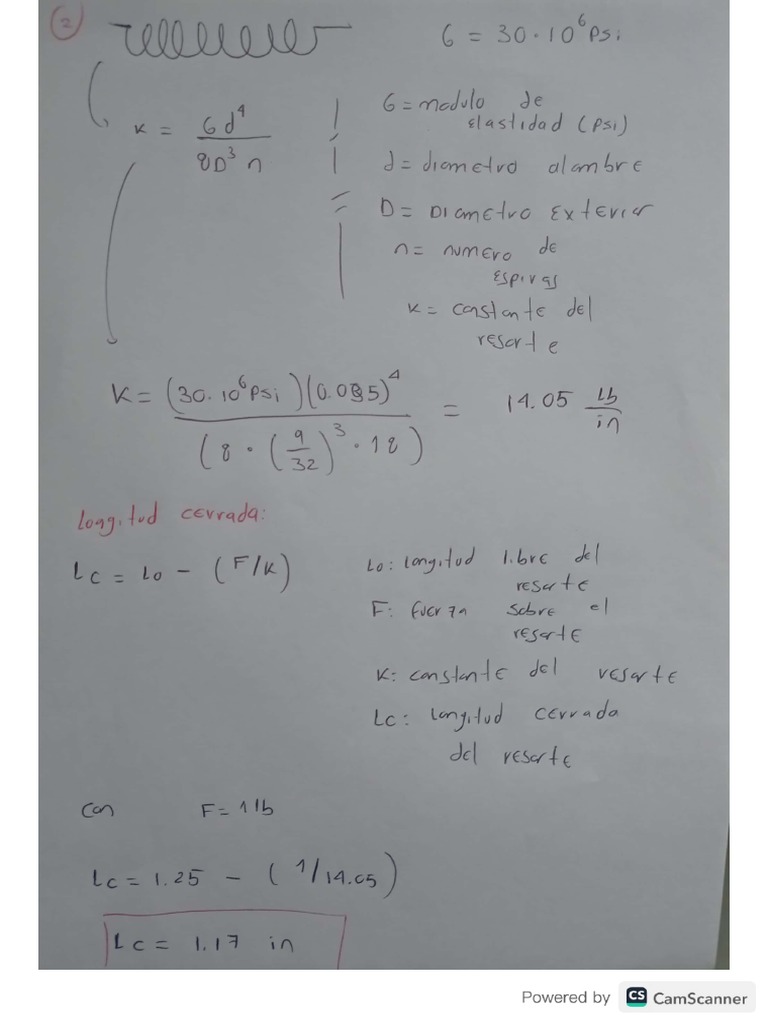 2
G = 30·10⁶ Psi
K = Gd⁴ / 8D³n
G = modulo de
elastidad (psi)
d = diametro alambre
D = Diametro Exterior
n = numero de
Espiras
K = constante del
resorte
K = (30·10⁶ Psi)(0.035)⁴ / (8·(9/32)³·18) = 14.05 lb/in
Longitud cerrada:
Lc = Lo - (F/K)
Lo: longitud libre del
resorte
F: fuerza sobre el
resorte
K: constante del resorte
Lc: longitud cerrada
del resorte
Con F = 1 lb
Lc = 1.25 - (1/14.05)
Lc = 1.17 in
Powered by CS CamScanner